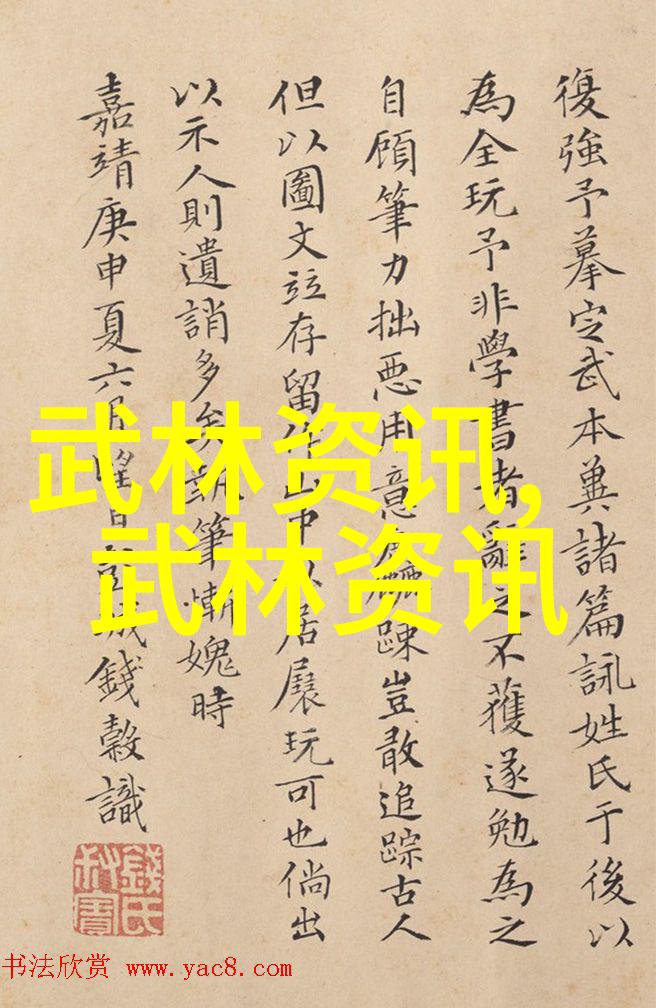 復強予摹定武本兼諸篇詠姓氏于後以
為全玩予非學書者辭之不獲遂勉為之
自顧筆力拙惡用意麤踈豈敢追踪古人
但以圖文竝存留作山中居展玩可也倘出
以示人則遺誚多矣執筆慚媿時
嘉靖庚申夏六月日彭城錢榖識
錢氏叔寶
武林资讯,
武林资讯
书法欣赏 www.yac8.com